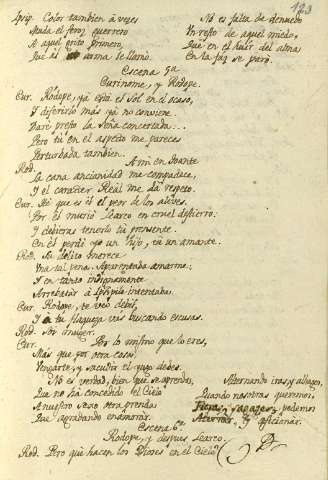 123
Ipsip. Color tambien à veces
Muda el feroz guerrero
A aquel grito primero,
Que al arma le llamò.
No es falta de denuedo
Un resto de aquel miedo,
Que en el huir del alma
En la faz se paró.
Escena 5ª
Curinome, y Rodope.
Cur. Rodope, ya està el sol en el ocaso,
Y diferirlo más ya no conviene.
Darè presto la seña concertada...
Pero tu en el aspecto me pareces
Perturbada tambien.
Rod. A mi en Toante
La cana ancianidad me compadece,
Y el caracter Real me da respeto.
Cur. Sè que es èl el peor de los aleves.
Por èl muriò Learco en cruel destierro;
Y debieras tenerlo tù presente.
En èl perdì yo un hijo, tù un amante.
Rod. Su delito merece
Una tal pena. Aparentaba amarme,
Y en tanto indignamente
Arrebatar à Ipsipile intentaba.
Cur. Rodope, te veo debil,
Y à tu flaqueza vas buscando escusas.
Rod. Soy muger.
Cur. Por lo mismo que lo eres,
Más que por otra cosa,
Vengarte, y sacudir el yugo debes.
No es verdad, bien que se aprenda,
Que no ha concedido el Cielo
A nuestro sexo otra prenda
Que agradando enamorar.
Alternando iras, y alhagos,
Quando nosotras queremos,
Fieras, sagaces, podemos
Aterrar, y aficionar.
Escena 6ª
Rodope, y despues Learco.
Rod. Pero què hacen los Dioses en el Cielo,